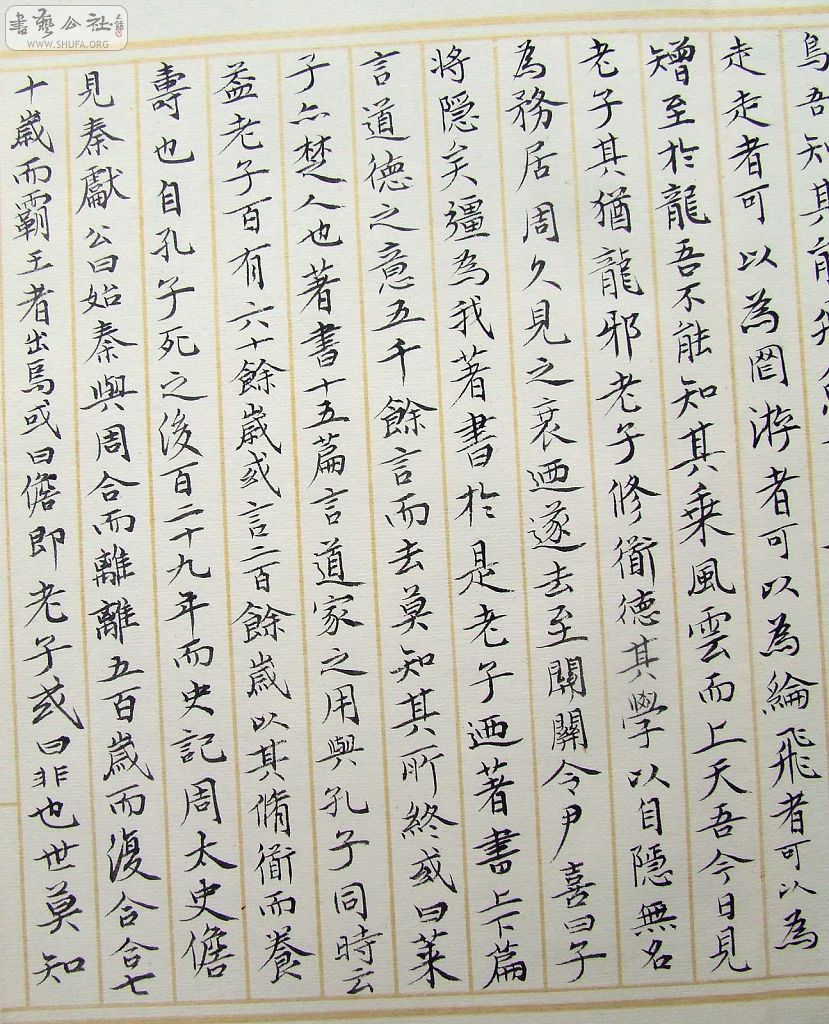 書藝公社
WWW.SHUFA.ORG
鳥吾知其能飛
走走者可以為罔游者可以為綸飛者可以為
矰至於龍吾不能知其乘風雲而上天吾今日見
老子其猶龍邪老子修衜德其學以自隱無名
為務居周久見之衰迺遂去至關關令尹喜曰子
将隱矣彊為我著書於是老子迺著書上下篇
言道德之意五千餘言而去莫知其所終或曰萊
子亦楚人也著書十五篇言道家之用與孔子同時云
盖老子百有六十餘歲或言二百餘歲以其脩衜而養
壽也自孔子死之後百二十九年而史記周太史儋
見秦獻公曰始秦與周合而離離五百歲而復合合七
十歲而霸王者出焉或曰儋即老子或曰非也世莫知